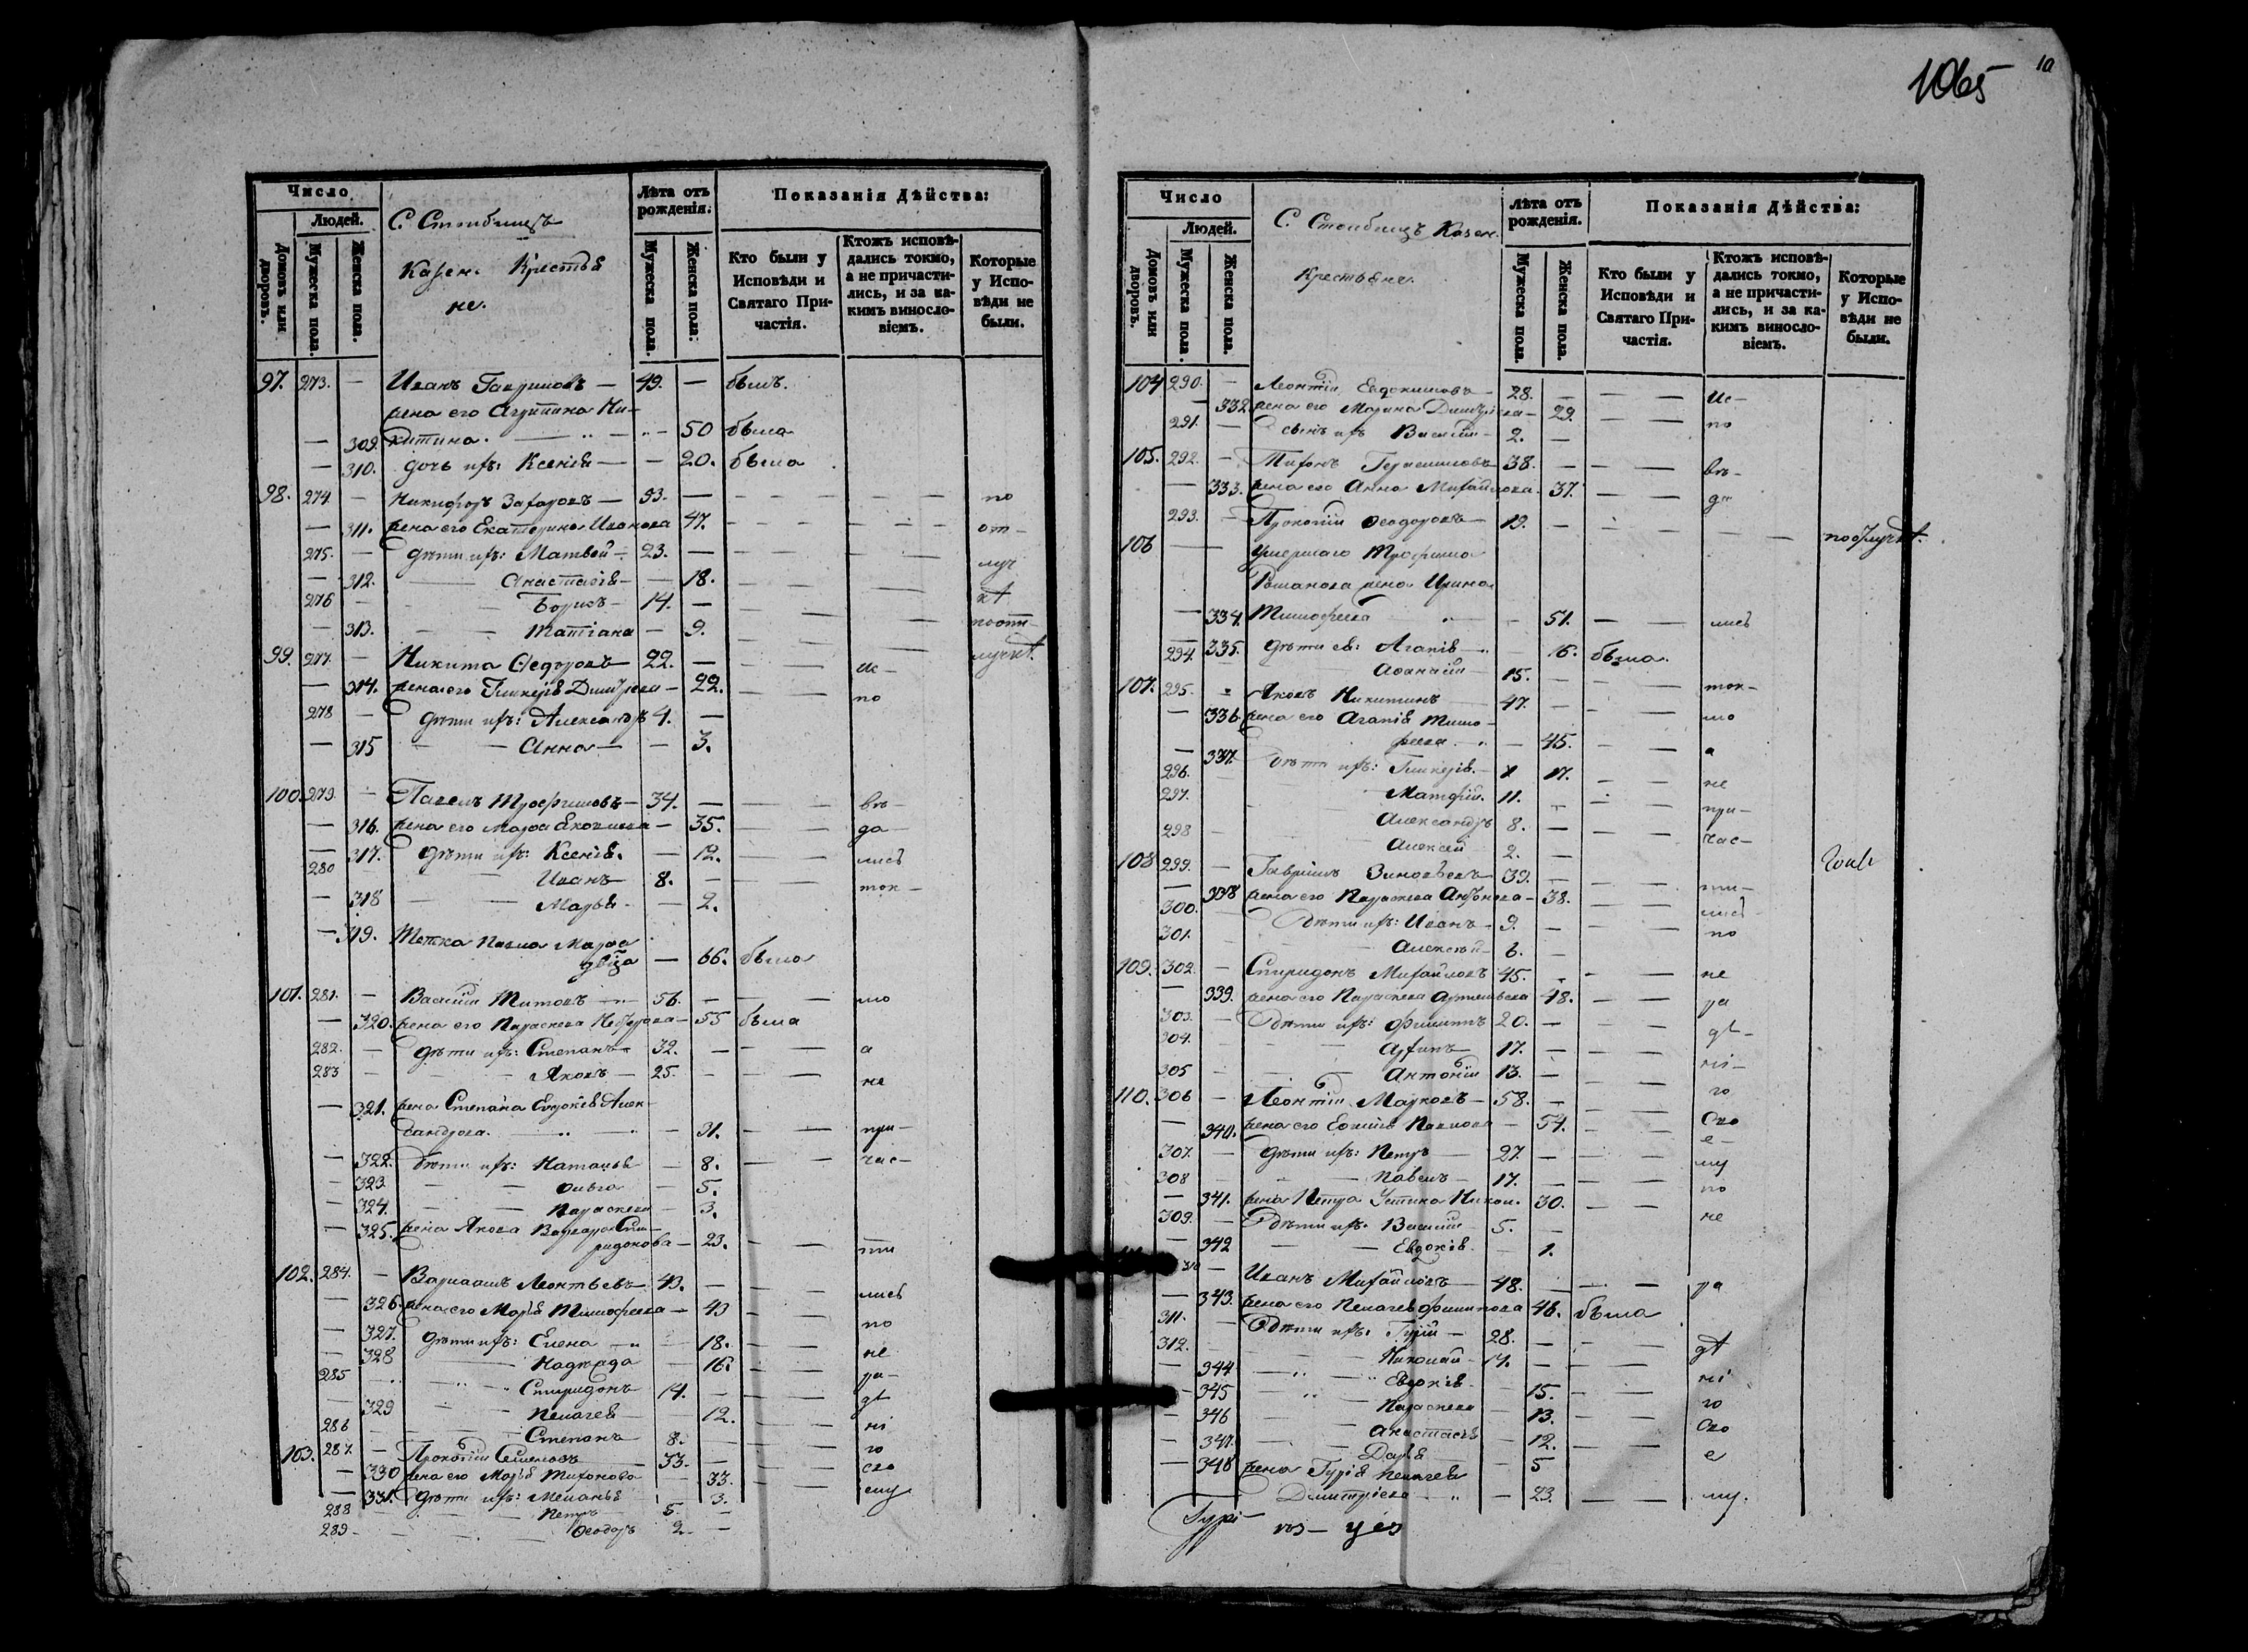 1065
10
Число
Людей.
Домовъ или дворовъ.
Мужеска пола.
Женска пола.
С. Столбищъ
Казен. Крестья
не.
Лѣта отъ рожденія:
Мужеска пола.
Женска пола:
Показанія Дѣйства:
Кто были у Исповѣди и Святаго Причастія.
Ктожъ исповѣдались токмо, а не причастились, и за какимъ винословіемъ.
Которые у Исповѣди не были.
97. 273. — Иванъ Гавриловъ — 49. — былъ.
жена его Агрипина Ни-
— 309. китина. — 50 была
— 310. дочь ихъ: Ксенія — — 20. была
98. 274. — Никифоръ Захаровъ — 53. — по
— 311. жена его Екатерина Иванова 47. от-
275. — дѣти ихъ: Матвей — 23. — луч
— 312. Анастасія — — 18.
276 — Борисъ — 14. —
— 313. Татіана — 9. поотл-
99. 277. — Никита Ѳедоровъ — 22. — ис-
— 314. жена его Гликерія Димитріева — 22. по
278 — дѣти ихъ: Александръ 4. —
— 315 — Анна — — 3.
100. 279. — Павелъ Трофимовъ — 34. — вѣ-
— 316. жена его Марѳа Яковлева — 35. да-
— 317. дѣти ихъ: Ксенія. — 12. лись
280 Иванъ 8. — ток-
— 318 Марья — 2.
— 319. Тетка Павла Марѳа
двца — 66. была
101. 281. — Василій Титовъ — 56. — мо
— 320. жена его Параскева Неѳедова — 55 была
282. — дѣти ихъ: Степанъ — 32. — а
283 — Яковъ — 25. — не
— 321. жена Степана Евдокія Алек-
сандрова. — 31. при-
— 322. дѣти ихъ: Наталья — 8. час-
— 323. Ольга — 5.
— 324. Параскева — 3.
— 325. жена Якова Варвара Спи-
ридонова — 23. ти
102. 284. — Варлаамъ Леонтьевъ — 43. — лись
— 326. жена его Марья Тимофеева — 43 по
— 327. дѣти ихъ: Елена — 18. не
— 328 Надежда — 16. ра-
285 Спиридонъ 14. — дѣ
— 329 Пелагея — 12. ні
286 Степанъ 8. — го
103. 287. — Прокопій Семеновъ 33. — сво
— 330 жена его Марья Тихонова 33. ему
— 331. дѣти ихъ: Меланья 3.
288 Петръ 5. —
289 — Ѳеодоръ 2. —
Число
Людей.
Домовъ или дворовъ.
Мужеска пола.
Женска пола.
С. Столбищъ Казен.
Крестьяне.
Лѣта отъ рожденія.
Мужеска пола.
Женска пола.
Показанія Дѣйства:
Кто были у Исповѣди и Святаго Причастія.
Ктожъ исповѣдались токмо, а не причастились, и за какимъ винословіемъ.
Которые у Исповѣди не были.
104 290. — Леонтій Евдокимовъ — 28. — ис-
— 332. жена его Марина Димитріева — 29. по
291. — сынъ ихъ Василій — 2. —
105. 292. — Тихонъ Герасимовъ 38. — вѣ-
— 333. жена его Анна Михайлова. 37. да
293. — Прокопій Ѳеодоровъ — 19. —
106 — умершаго Трофима
жена Ирина
— 334. Тимофеева — 51. лись
— 335. дѣти ея: Агапія — 16. была.
294. Аѳанасій — 15. — ток-
107. 295. — Яковъ Никитинъ 47. — мо
— 336. жена его Агапія Тимо-
феева — 45. а
— 337. дѣти ихъ: Гликерія — 17. не
296. Матѳій. 11. — при-
297. Александръ 8. — час-
298 Алексей 2. —
108 299. — Гавріилъ Зиновьевъ 39. — ти-
— 338 жена его Параскева Антонова — 38. лись
300. дѣти ихъ: Иванъ — 9. — по
301. Алексѣй — 6. —
109. 302. — Спиридонъ Михайловъ 45. — не
— 339. жена его Параскева Артемьева 48. ра
303. — дѣти ихъ: Филиппъ 20. — дѣ-
304. Архипъ 17. — ні-
305 Антоній 13. — го
110. 306 — Леонтій Марковъ — 58. — сво
— 340. жена его Евѳимія Павлова — 54. е-
307. дѣти ихъ: Петръ 27. — му
308 — Павелъ — 17. — по
— 341. жена Петра Устина Никол. 30. не
309. — дѣти ихъ: Василій 5. —
— 342 — Евдокія. — 1.
310 — Иванъ Михайловъ — 48. — ра
— 343. жена его Пелагея Филиппова 46. была
311. — дѣти ихъ: Гурій — 28. — дѣ
312. Николай — 14. — ні
— 344 Евдокія — 15. го
— 345 Параскева — 13. сво
— 346 Анастасія — 12. е
— 347. Дарья — 5
— 348 жена Гурія Пелагея
Димитріева — 23. му.